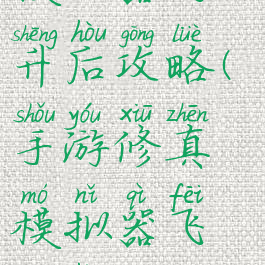 shēng hòu gōng lüè
升后攻略(
shǒu yóu xiū zhēn
手游修真
mó nǐ qì fēi
模拟器飞